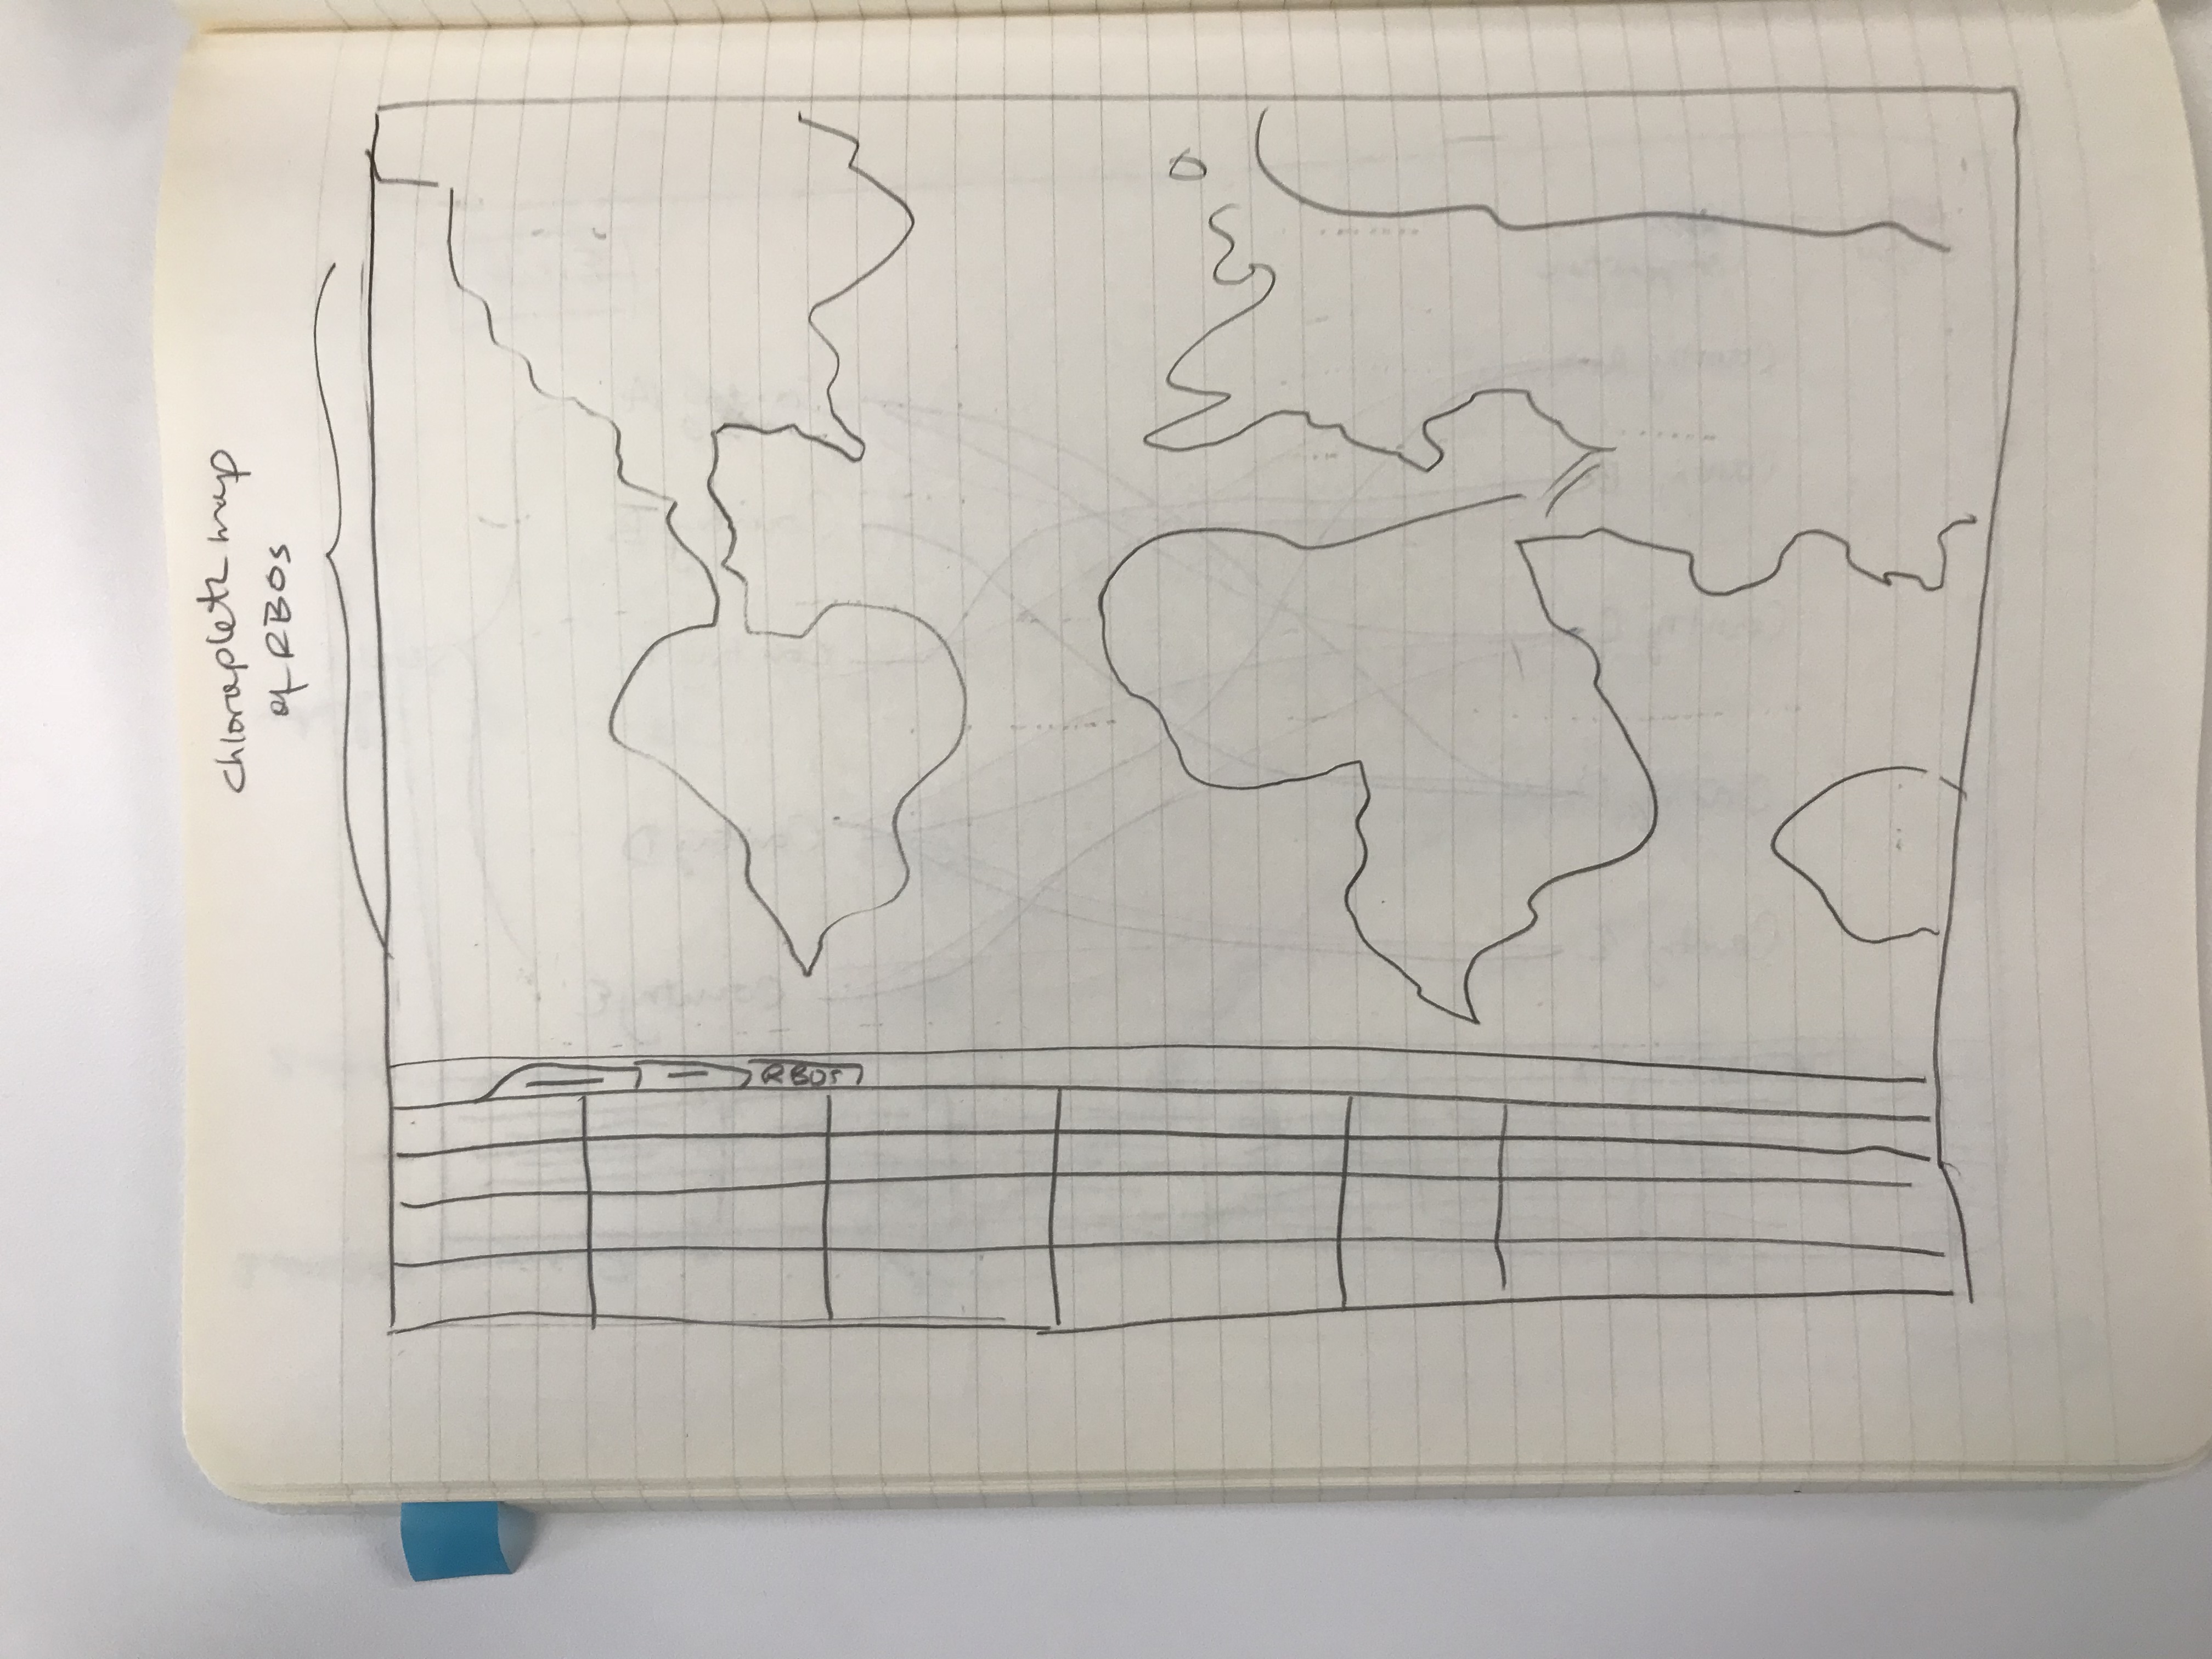 Chloropleth map
of RBOs
RBOs